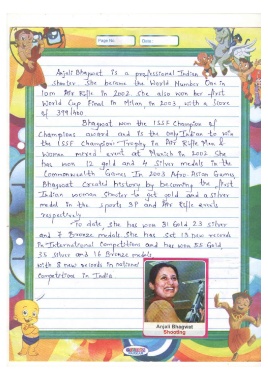 Page No.
Date:
Anjali Bhagwat is a professional Indian
Shooter. She became the World Number One in
10m Air Rifle in 2002. She also won her first
World Cup Final in Milan, in 2003, with a score
of 399/400.
Bhagwat won the ISSF Champion of
Champions award and is the only Indian to win
the ISSF Champion Trophy in Air Rifle Men &
Women mixed event at Munich in 2002 She
has won 12 gold and 4 Silver medels in the
Commonwealth Games In 2003 Afro Asian Games,
Bhagwat Created history by becoming the first
Indian woman Shooter to get gold and a silver
medal in the Sports 3P and Air Rifle events
respectively
To date, she has 31 Gold 23 silver
and 7 Bronze medals She has Set 13 new record
In International Competitions and has won 55 Gold,
35 silver and 16 Bronze medals
with 8 new records in national
Competitions in India
Anjali Bhagwat
Shooting